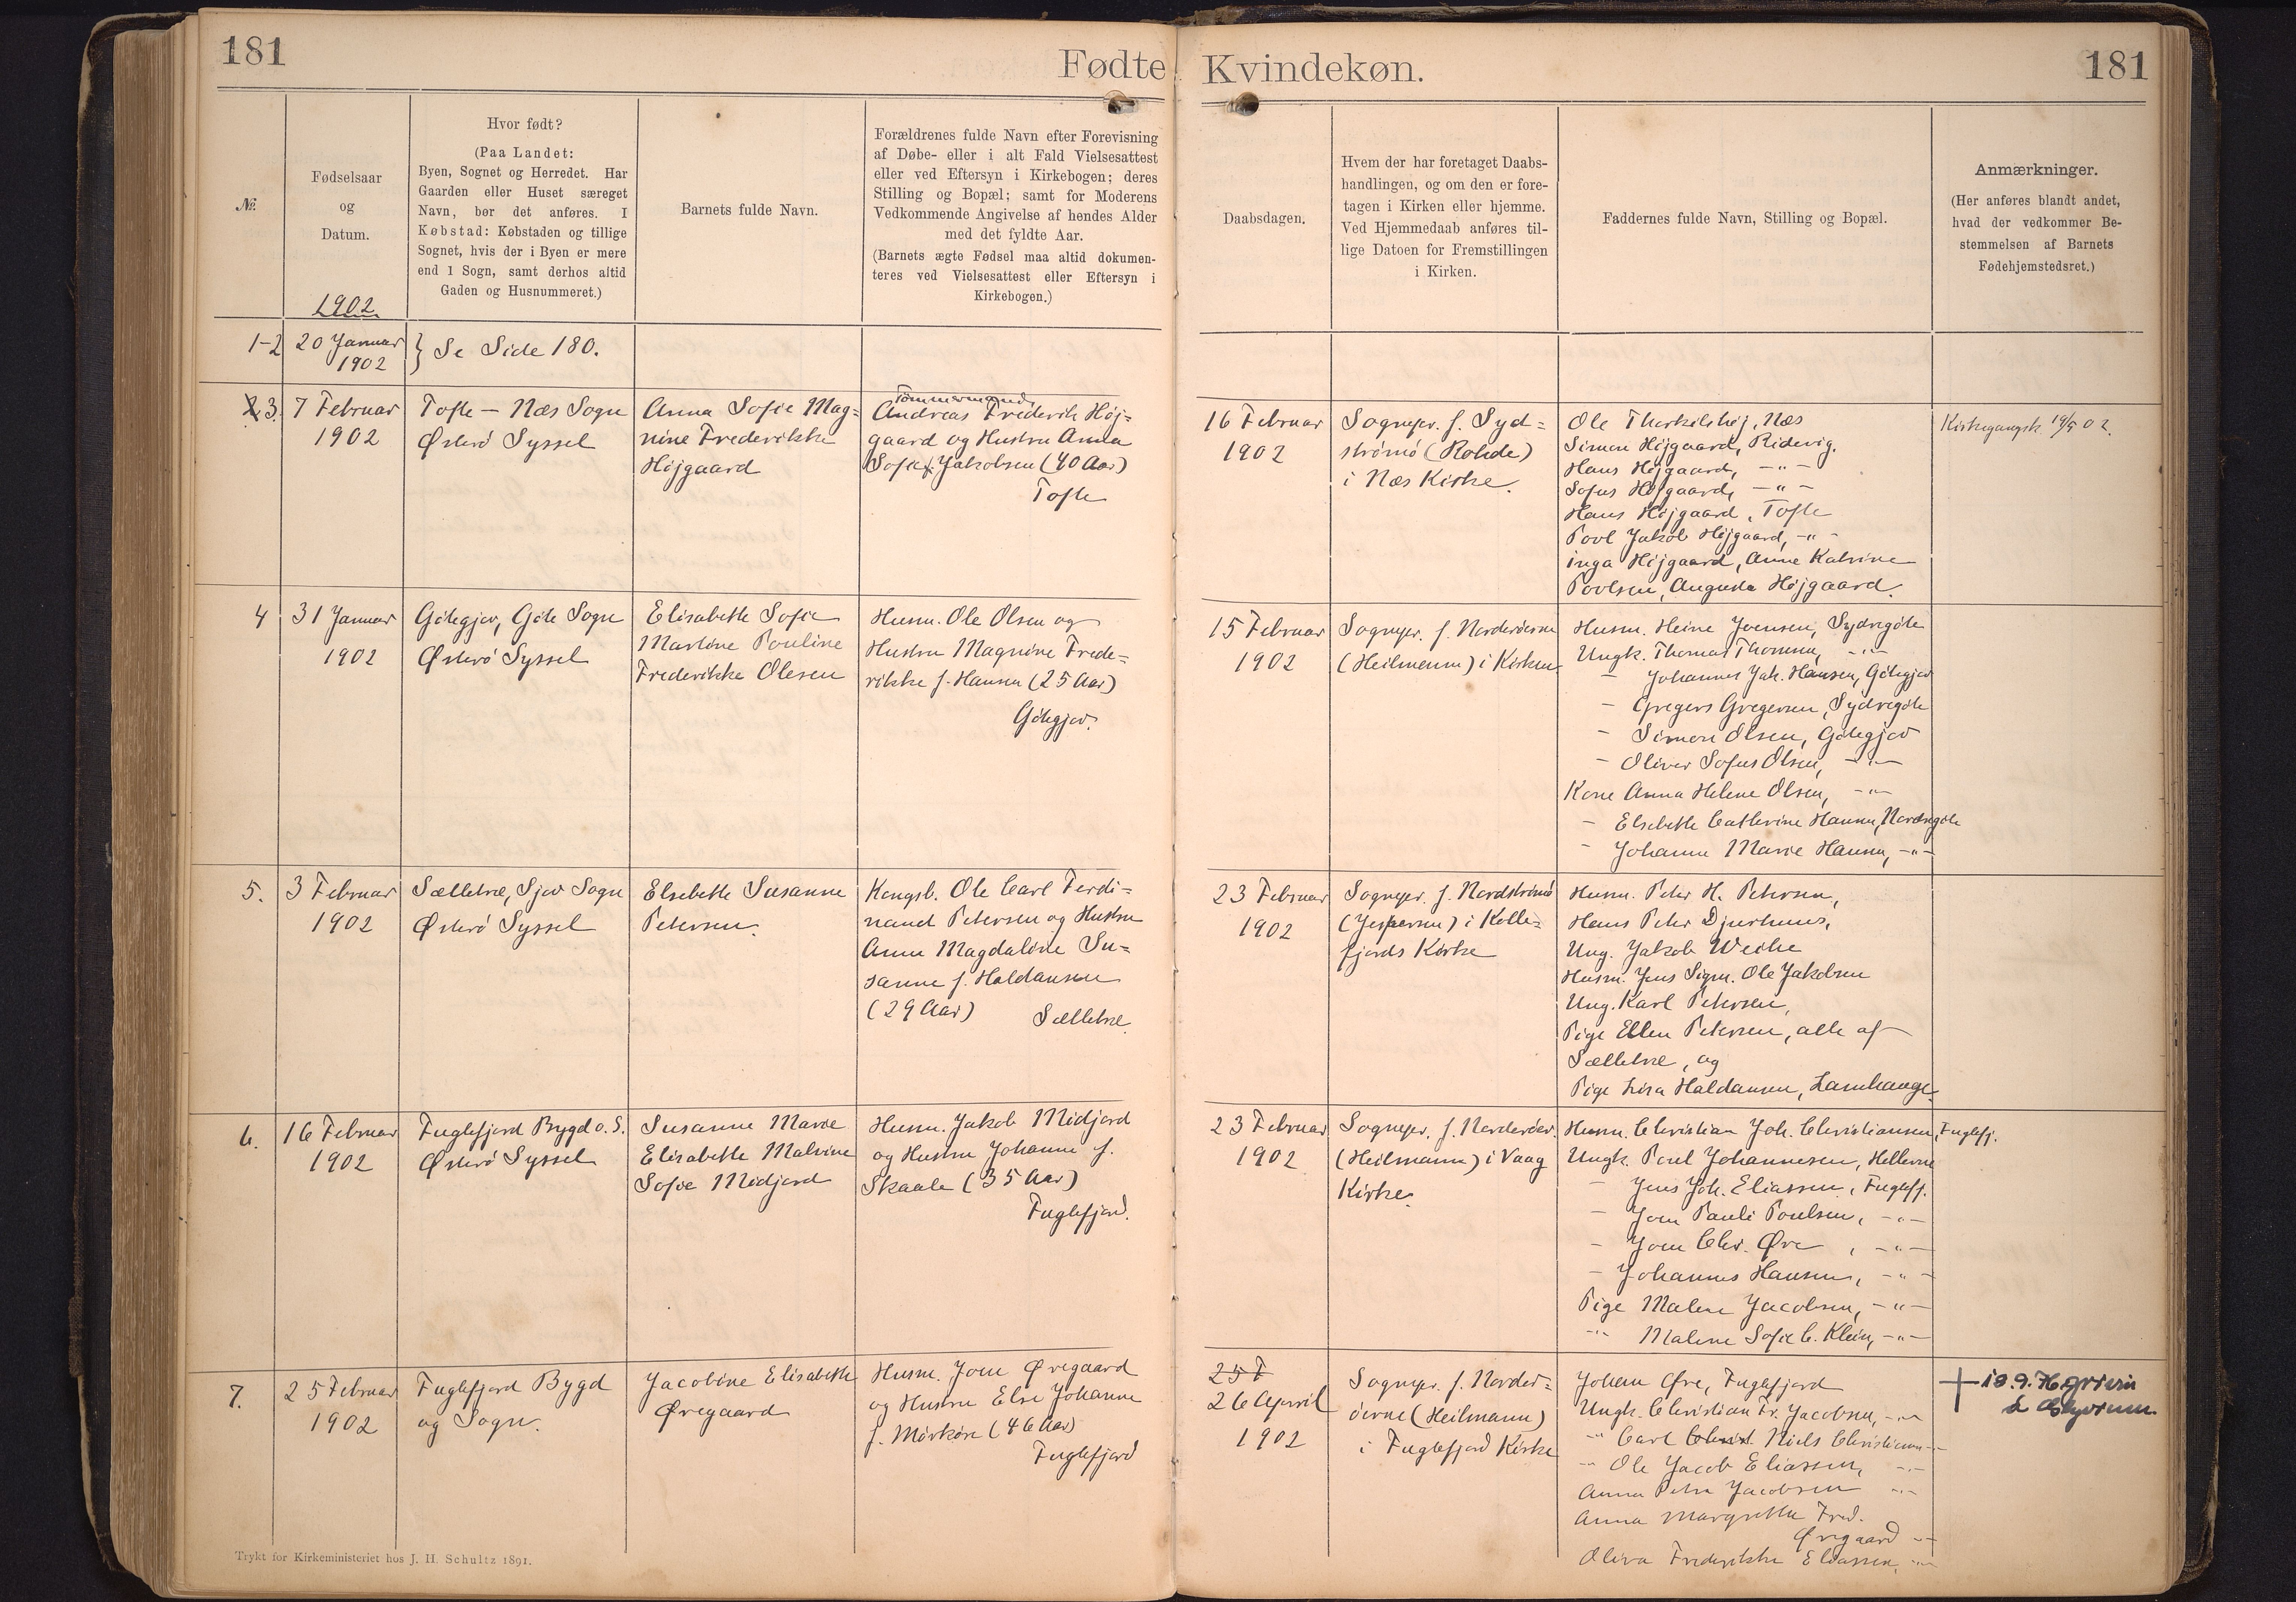 181
Fødte
Kvindekøn.
181
№.
Fødselsaar
og
Datum.
1902
Hvor født?
(Paa Landet:
Byen, Sognet og Herredet. Har
Gaarden eller Huset særeget
Navn, bør det anføres. I
Købstad: Købstaden og tillige
Sognet, hvis der i Byen er mere
end 1 Sogn, samt derhos altid
Gaden og Husnummeret.)
Barnets fulde Navn.
Forældrenes fulde Navn efter Forevisning
af Døbe- eller i alt Fald Vielsesattest
eller ved Eftersyn i Kirkebogen; deres
Stilling og Bopæl; samt for Moderens
Vedkommende Angivelse af hendes Alder
med det fyldte Aar.
(Barnets ægte Fødsel maa altid dokumen-
teres ved Vielsesattest eller Eftersyn i
Kirkebogen.)
Daabsdagen.
Hvem der har foretaget Daabs-
handlingen, og om den er fore-
tagen i Kirken eller hjemme.
Ved Hjemmedaab anføres til-
lige Datoen for Fremstillingen
i Kirken.
Faddernes fulde Navn, Stilling og Bopæl.
Anmærkninger.
(Her anføres blandt andet,
hvad der vedkommer Be-
stemmelsen af Barnets
Fødehjemstedsret.)
1-2
20 Januar
1902
} Se Side 180.
3.
7 Februar
1902
Tofte — Næs Sogn
Østerø Syssel
Anna Sofie Mag=
nine Frederikke
Højgaard
Tømmermand
Andreas Frederik Høj=
gaard og Hustru Anna
Sofie f. Jakobsen (40 Aar)
Tofte
16 Februar
1902
Sognepr. f. Syd=
strømø (Rohde)
i Næs Kirke.
Ole Thorkilshøj, Næs
Simon Højgaard, Ridevig.
Hans Højgaard, —"—
Sofus Højgaard, —"—
Hans Højgaard, Tofte
Povl Jakob Højgaard, —"—
Inga Højgaard, Anne Katrine
Povlsen, Augusta Højgaard.
Kirkegangsk. 19/5 02.
4
31 Januar
1902
Gøtegjov, Gøte Sogn
Østerø Syssel
Elisabeth Sofie
Martine Pouline
Frederikke Olesen
Husm. Ole Olsen og
Hustru Magnine Frede=
rikke f. Hansen (25 Aar)
Gøtegjov.
15 Februar
1902
Sognepr. f. Norderøerne
(Heilmann) i Kirken
Husm. Heine Joensen, Sydregøte
Ungk. Thomas Thomsen, —"—
— Johannes Jak. Hansen, Gøtegjov
— Gregers Gregersen, Sydregøte
— Simon Olsen, Gøtegjov
— Oliver Sofus Olsen, —"—
Kone Anna Helene Olsen, —"—
— Elsebeth Cathrine Hansen, Nordregøte
— Johanne Marie Hansen, —"—
5.
3 Februar
1902
Sælletræ, Sjov Sogn
Østerø Syssel
Elsebeth Susanne
Petersen.
Kongsb. Ole Carl Ferdi=
nand Petersen og Hustru
Anne Magdalene Su=
sanne f. Haldansen
(29 Aar)
Sælletræ.
23 Februar
1902
Sognepr. f. Nordstrømø
(Jespersen) i Kolle=
fjords Kirke
Husm. Peter H. Petersen,
Hans Peter Djurhuus,
Ung. Jakob Weihe
Husm. Jens Sigm. Ole Jakobsen
Ung. Karl Petersen,
Pige Ellen Petersen, alle af
Sælletræ, og
Pige Lisa Haldansen, Lamhauge
6.
16 Februar
1902
Fuglefjord Bygd o. S.
Østerø Syssel
Susanne Marie
Elisabeth Malvine
Sofie Midjord
Husm. Jakob Midjord
og Hustru Johanne f.
Skaale (35 Aar)
Fuglefjord.
23 Februar
1902
Sognepr. f. Norderøer.
(Heilmann) i Vaag
Kirke.
Husm. Christian Joh. Christiansen, Fuglefj.
Ungk. Poul Johannesen, Hellerne
— Jens Joh. Eliassen, Fuglefj.
— Joen Pauli Poulsen, —"—
— Joen Chr. Øre, —"—
— Johannes Hansen, —"—
Pige Malene Jacobsen, —"—
—"— Malene Sofie C. Klein, —"—
7.
25 Februar
1902
Fuglefjord Bygd
og Sogn.
Jacobine Elisabeth
Øregaard
Husm. Joen Øregaard
og Hustru Else Johanne
f. Mörköre (46 Aar)
Fuglefjord
25 F
26 April
1902
Sognepr. f. Norder=
øerne (Heilmann)
i Fuglefjord Kirke
Johan Øre, Fuglefjord
Ungk. Christian Fr. Jacobsen, —"—
—"— Carl Christ. Niels Christiansen —"—
—"— Ole Jacob Eliassen, —"—
Anna Petra Jacobsen —"—
Anna Margretha Fred.
Øregaard —"—
Oliva Frederikke Eliassen, —"—
Trykt for Kirkeministeriet hos J. H. Schultz 1891.